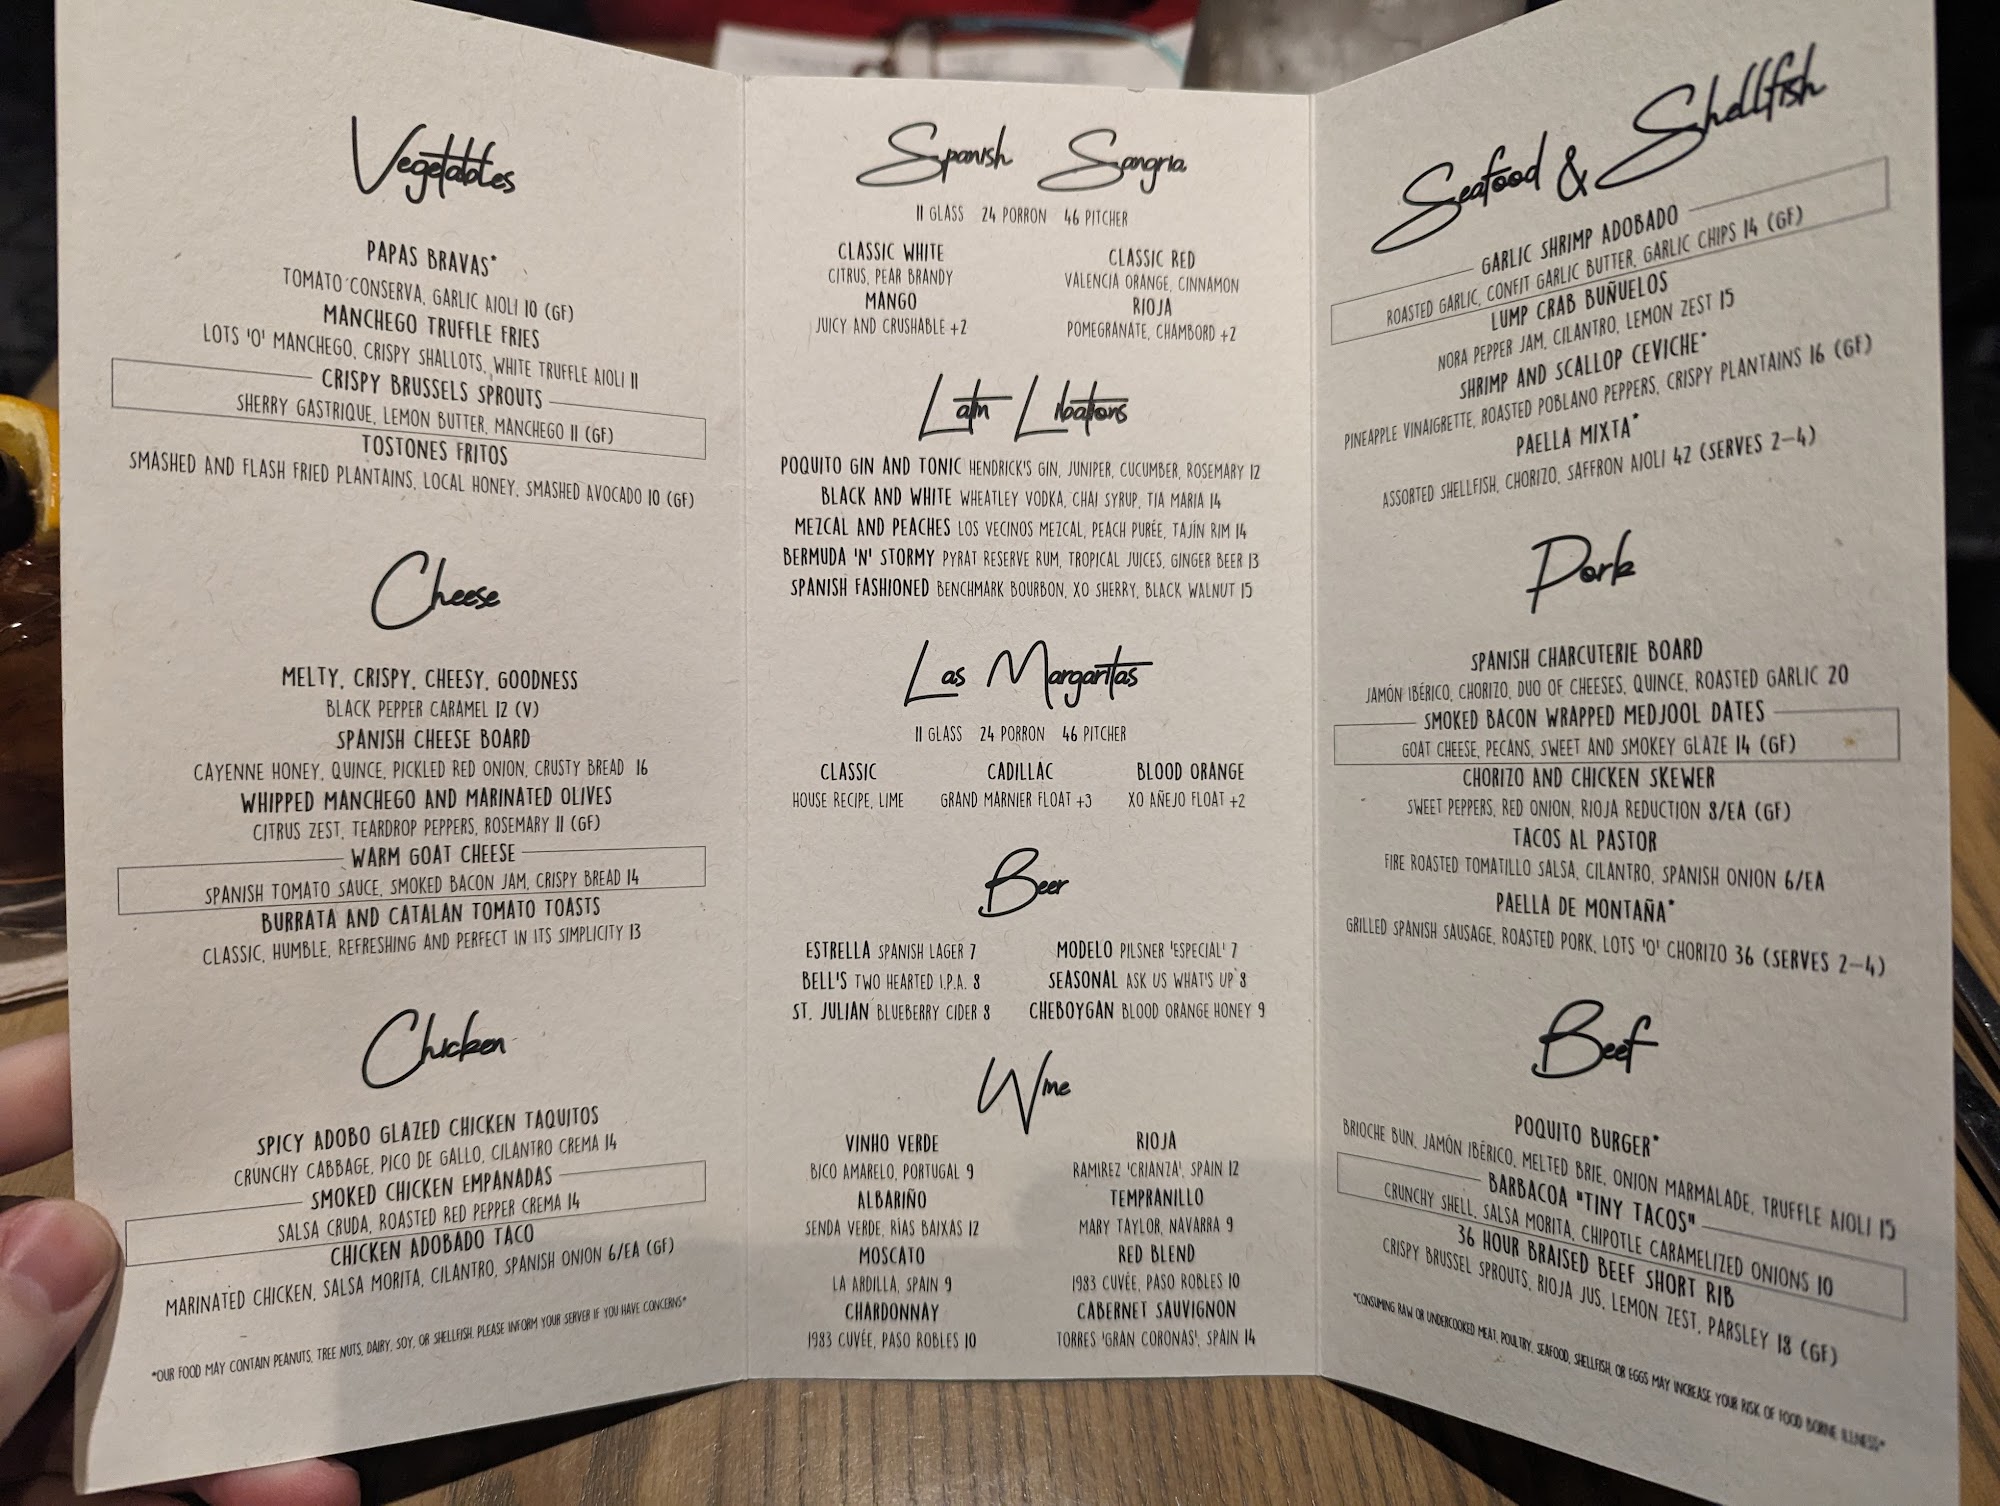 Vegetables
PAPAS BRAVAS*
TOMATO CONSERVA, GARLIC AIOLI 10 (GF)
MANCHEGO TRUFFLE FRIES
LOTS 'O' MANCHEGO, CRISPY SHALLOTS, WHITE TRUFFLE AIOLI 11
CRISPY BRUSSELS SPROUTS
SHERRY GASTRIQUE, LEMON BUTTER, MANCHEGO 11 (GF)
TOSTONES FRITOS
SMASHED AND FLASH FRIED PLANTAINS, LOCAL HONEY, SMASHED AVOCADO 10 (GF)
Cheese
MELTY, CRISPY, CHEESY, GOODNESS
BLACK PEPPER CARAMEL 12 (V)
SPANISH CHEESE BOARD
CAYENNE HONEY, QUINCE, PICKLED RED ONION, CRUSTY BREAD 16
WHIPPED MANCHEGO AND MARINATED OLIVES
CITRUS ZEST, TEARDROP PEPPERS, ROSEMARY 11 (GF)
WARM GOAT CHEESE
SPANISH TOMATO SAUCE, SMOKED BACON JAM, CRISPY BREAD 14
BURRATA AND CATALAN TOMATO TOASTS
CLASSIC, HUMBLE, REFRESHING AND PERFECT IN ITS SIMPLICITY 13
Chicken
SPICY ADOBO GLAZED CHICKEN TAQUITOS
CRUNCHY CABBAGE, PICO DE GALLO, CILANTRO CREMA 14
SMOKED CHICKEN EMPANADAS
SALSA CRUDA, ROASTED RED PEPPER CREMA 14
CHICKEN ADOBADO TACO
MARINATED CHICKEN, SALSA MORITA, CILANTRO, SPANISH ONION 6/EA (GF)
*OUR FOOD MAY CONTAIN PEANUTS, TREE NUTS, DAIRY, SOY, OR SHELLFISH. PLEASE INFORM YOUR SERVER IF YOU HAVE CONCERNS*
Spanish Sangria
11 GLASS 24 PORRON 46 PITCHER
CLASSIC WHITE
CITRUS, PEAR BRANDY
MANGO
JUICY AND CRUSHABLE +2
CLASSIC RED
VALENCIA ORANGE, CINNAMON
RIOJA
POMEGRANATE, CHAMBORD +2
Latin Libations
POQUITO GIN AND TONIC HENDRICK'S GIN, JUNIPER, CUCUMBER, ROSEMARY 12
BLACK AND WHITE WHEATLEY VODKA, CHAI SYRUP, TIA MARIA 14
MEZCAL AND PEACHES LOS VECINOS MEZCAL, PEACH PURÉE, TAJÍN RIM 14
BERMUDA 'N' STORMY PYRAT RESERVE RUM, TROPICAL JUICES, GINGER BEER 13
SPANISH FASHIONED BENCHMARK BOURBON, XO SHERRY, BLACK WALNUT 15
Las Margaritas
11 GLASS 24 PORRON 46 PITCHER
CLASSIC
HOUSE RECIPE, LIME
CADILLAC
GRAND MARNIER FLOAT +3
BLOOD ORANGE
XO AÑEJO FLOAT +2
Beer
ESTRELLA SPANISH LAGER 7
BELL'S TWO HEARTED I.P.A. 8
ST. JULIAN BLUEBERRY CIDER 8
MODELO PILSNER 'ESPECIAL' 7
SEASONAL ASK US WHAT'S UP 8
CHEBOYGAN BLOOD ORANGE HONEY 9
Wine
VINHO VERDE
BICO AMARELO, PORTUGAL 9
ALBARIÑO
SENDA VERDE, RÍAS BAIXAS 12
MOSCATO
LA ARDILLA, SPAIN 9
CHARDONNAY
1983 CUVÉE, PASO ROBLES 10
RIOJA
RAMIREZ 'CRIANZA', SPAIN 12
TEMPRANILLO
MARY TAYLOR, NAVARRA 9
RED BLEND
1983 CUVÉE, PASO ROBLES 10
CABERNET SAUVIGNON
TORRES 'GRAN CORONAS', SPAIN 14
Seafood & Shellfish
GARLIC SHRIMP ADOBADO
ROASTED GARLIC, CONFIT GARLIC BUTTER, GARLIC CHIPS 14 (GF)
LUMP CRAB BUÑUELOS
NORA PEPPER JAM, CILANTRO, LEMON ZEST 15
SHRIMP AND SCALLOP CEVICHE*
PINEAPPLE VINAIGRETTE, ROASTED POBLANO PEPPERS, CRISPY PLANTAINS 16 (GF)
PAELLA MIXTA*
ASSORTED SHELLFISH, CHORIZO, SAFFRON AIOLI 42 (SERVES 2-4)
Pork
SPANISH CHARCUTERIE BOARD
JAMÓN IBÉRICO, CHORIZO, DUO OF CHEESES, QUINCE, ROASTED GARLIC 20
SMOKED BACON WRAPPED MEDJOOL DATES
GOAT CHEESE, PECANS, SWEET AND SMOKEY GLAZE 14 (GF)
CHORIZO AND CHICKEN SKEWER
SWEET PEPPERS, RED ONION, RIOJA REDUCTION 8/EA (GF)
TACOS AL PASTOR
FIRE ROASTED TOMATILLO SALSA, CILANTRO, SPANISH ONION 6/EA
PAELLA DE MONTAÑA*
GRILLED SPANISH SAUSAGE, ROASTED PORK, LOTS 'O' CHORIZO 36 (SERVES 2-4)
Beef
POQUITO BURGER*
BRIOCHE BUN, JAMÓN IBÉRICO, MELTED BRIE, ONION MARMALADE, TRUFFLE AIOLI 15
BARBACOA "TINY TACOS"
CRUNCHY SHELL, SALSA MORITA, CHIPOTLE CARAMELIZED ONIONS 10
36 HOUR BRAISED BEEF SHORT RIB
CRISPY BRUSSEL SPROUTS, RIOJA JUS, LEMON ZEST, PARSLEY 18 (GF)
*CONSUMING RAW OR UNDERCOOKED MEAT, POULTRY, SEAFOOD, SHELLFISH, OR EGGS MAY INCREASE YOUR RISK OF FOOD BORNE ILLNESS*